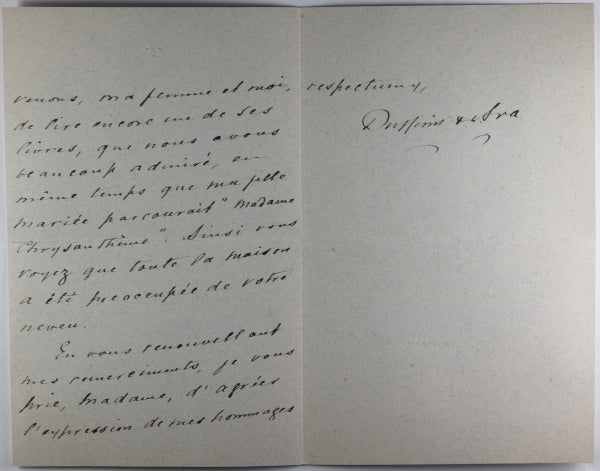 venons, ma femme et moi,
de lire encore un de ses
livres, que nous avons
beaucoup admiré, en
même temps que ma fille
mariée parcourait "Madame
Chrysanthème". Ainsi vous
voyez que toute la maison
a été préoccupée de votre
neveu.
En vous renouvellant
mes remerciments, je vous
prie, Madame, d'agréer
l'expression de mes hommages
respectueux,